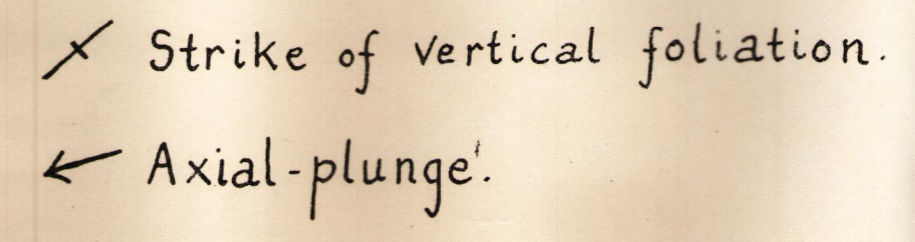 Strike of vertical foliation.
Axial-plunge.